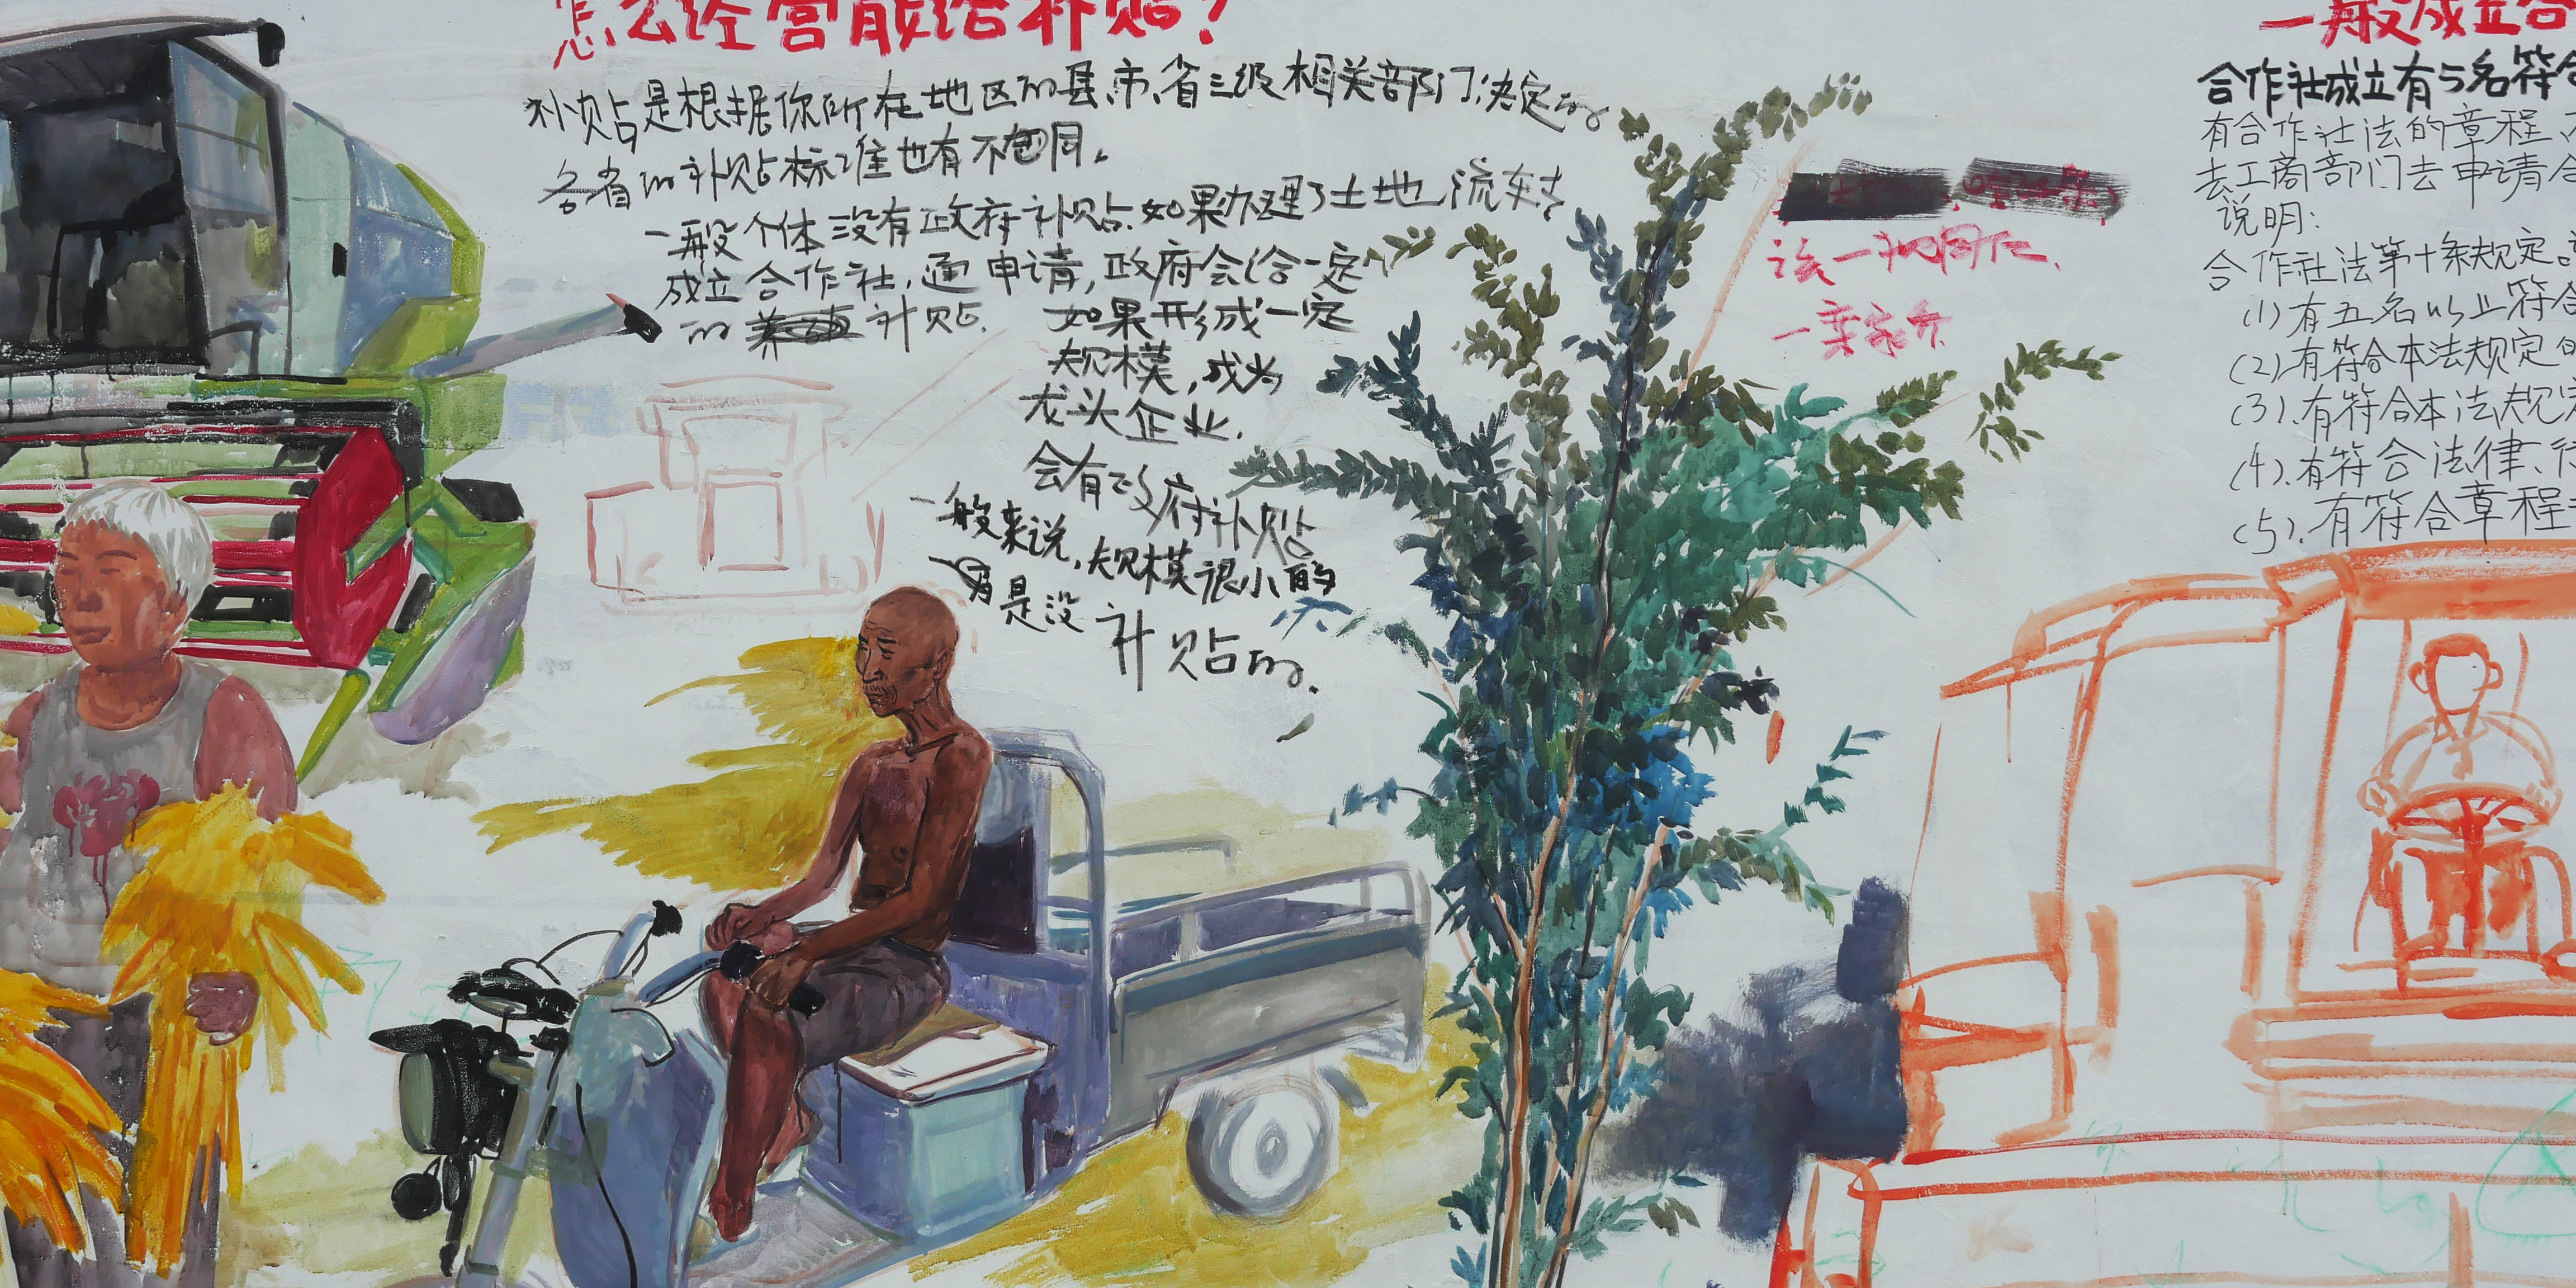 怎么经营能给补贴？
补贴是根据你所在地区的县、市、省三级相关部门决定的
各省的补贴标准也有不同。
一般个体没有政府补贴.如果办理了土地流转
成立合作社,通申请,政府会给一定
的补贴.
如果形成一定
规模,成为
龙头企业.
会有政府补贴
一般来说,规模很小的
是没补贴的.
该一视同仁、
一亲家介
一般成立合
合作社成立有5名符合
有合作社法的章程、
去工商部门去申请合
说明:
合作社法第十条规定
(1)有五名以上符合
(2).有符合本法规定的
(3).有符合本法规定
(4).有符合法律、行
(5).有符合章程